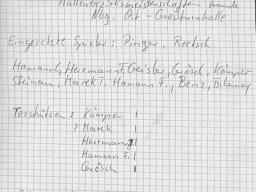 Hallenbezirksmeisterschaften
Nbg. Ost - Großturnhalle
Eingesetzte Spieler: Reetsch
Hamann, Herrmann F, Geisler, Grösch, Kämpfer
Steinau, Marek T., Hamann F., Benz,
Torschützen: Kämpfer I
T Marek I
Herrmann I
Hamann F. I
Grösch I